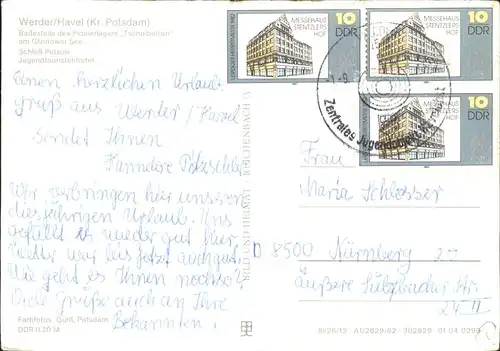 Werder/Havel (Kr. Potsdam)
Badestelle des Pionierlagers „Tschaibollan“
am Glindower See
Schloß Petzow
Jugendtouristenhotel
Einen herzlichen Urlaubs-
gruß aus Werder/Havel
Sendet Ihnen
Hannelore
Wir verbringen hier unseren
diesjährigen Urlaub. Uns
gefällt es wieder gut hier,
Wetter war bis jetzt
Wie geht es Ihnen noch so?
Viele Grüße auch an Ihre
Bekannten.
Farbfotos: Quill, Potsdam
DDR 0,20 M
BILD UND HEIMAT REICHENBACH (V)
LEIPZIGER HERBSTMESSE 1982
10
DDR
MESSEHAUS
STENTZLERS
HOF
10
DDR
MESSEHAUS
STENTZLERS
HOF
10
DDR
MESSEHAUS
STENTZLERS
HOF
Zentrales
Frau
Maria Schlosser
D 8500 Nürnberg 20
Äußere Sulzbacher Str.
24 II
III/26/13 A1/2629/82 302829 01 04 0299